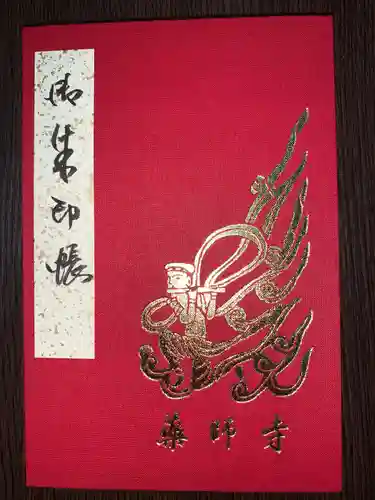 御朱印帳
薬師寺